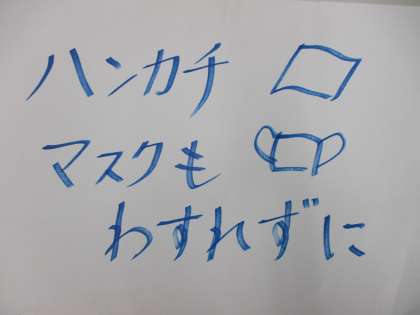 ハンカチ
マスクも
わすれずに